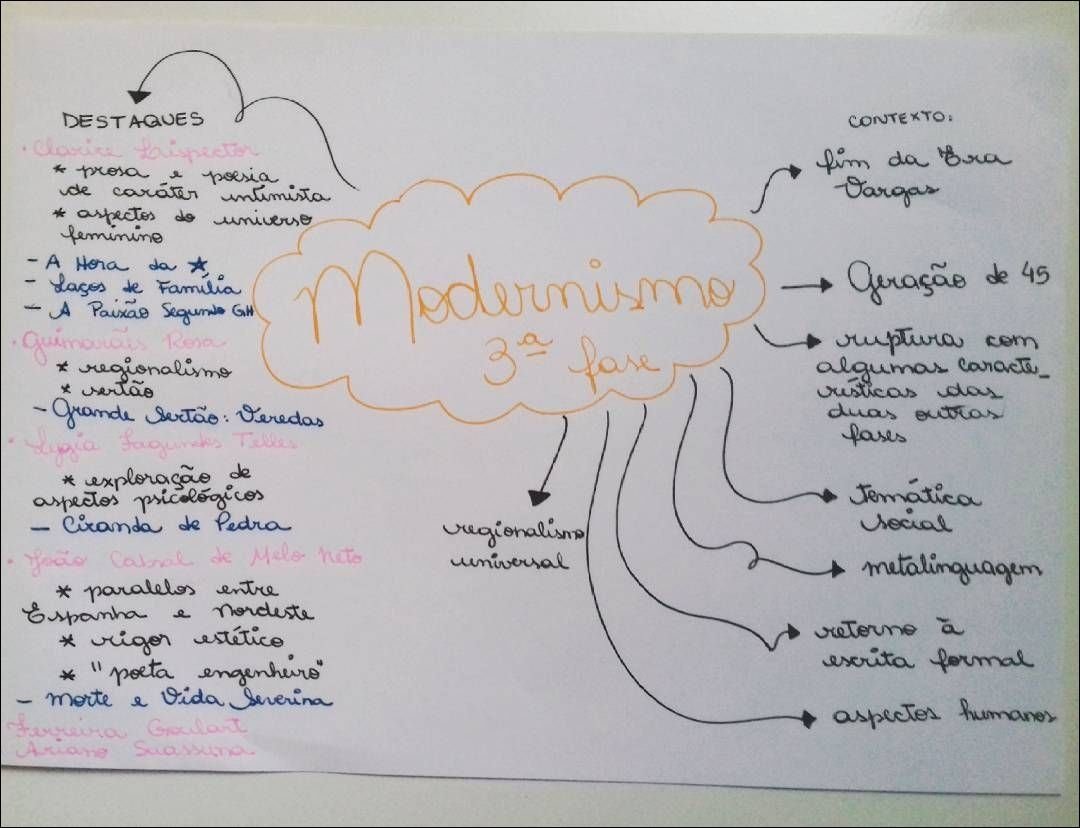 DESTAQUES
• Clarice Lispector
* prosa e poesia
de caráter intimista
* aspectos do universo
feminino
- A Hora da ★
- Laços de Família
- A Paixão Segundo GH
• Guimarães Rosa
* regionalismo
* sertão
- Grande Sertão: Veredas
• Lygia Fagundes Telles
* exploração de
aspectos psicológicos
- Ciranda de Pedra
• João Cabral de Melo Neto
* paralelos entre
Espanha e Nordeste
* rigor estético
* "poeta engenheiro"
- Morte e Vida Severina
Ferreira Goulart
Ariano Suassuna
Modernismo
3ª fase
CONTEXTO:
fim da Era
Vargas
Geração de 45
ruptura com
algumas caracte_
rísticas das
duas outras
fases
temática
social
metalinguagem
retorno à
escrita formal
aspectos humanos
regionalismo
universal